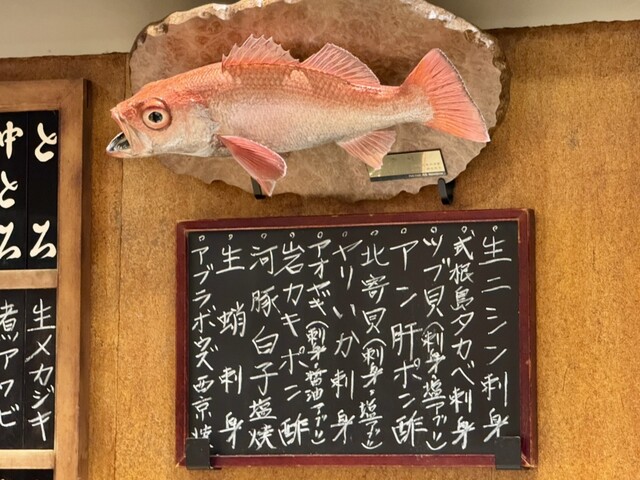 生ニシン刺身
式根島タカベ刺身
ツブ貝(刺身・塩アブリ)
アン肝ポン酢
北寄貝(刺身・塩アブリ)
ヤリいか刺身
アオヤギ(刺身・醤油アブリ)
岩カキポン酢
河豚白子塩焼
生蛸刺身
アブラボウズ西京焼
とろ
中とろ
生メカジキ
煮アワビ